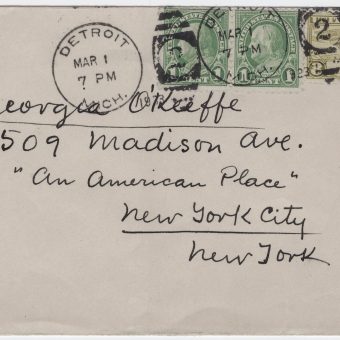 DETROIT
MAR 1
7 PM
MICH.
Georgia O'Keeffe
509 Madison Ave.
"An American Place"
New York City
New York